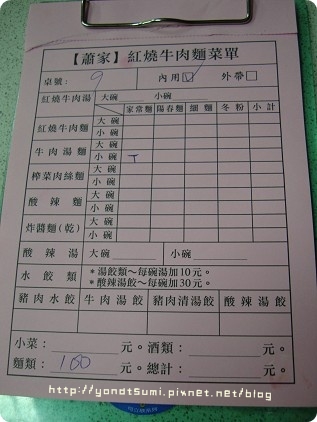 【蕭家】紅燒牛肉麵菜單
桌號: 9 內用☑ 外帶☐
紅燒牛肉湯 大碗 小碗
家常麵 陽春麵 細麵 冬粉 小計
紅燒牛肉麵 大碗
小碗
牛肉湯麵 大碗
小碗 T
榨菜肉絲麵 大碗
小碗
酸辣麵 大碗
小碗
炸醬麵(乾) 大碗
小碗
酸辣湯 大碗 小碗
水餃類 *湯餃類～每碗湯加10元。
*酸辣湯餃～每碗加30元。
豬肉水餃 牛肉湯餃 豬肉清湯餃 酸辣湯餃
小菜: 元。酒類: 元。
麵類: 100 元。總計: 元。
http://yonotsumi.pixnet.net/blog